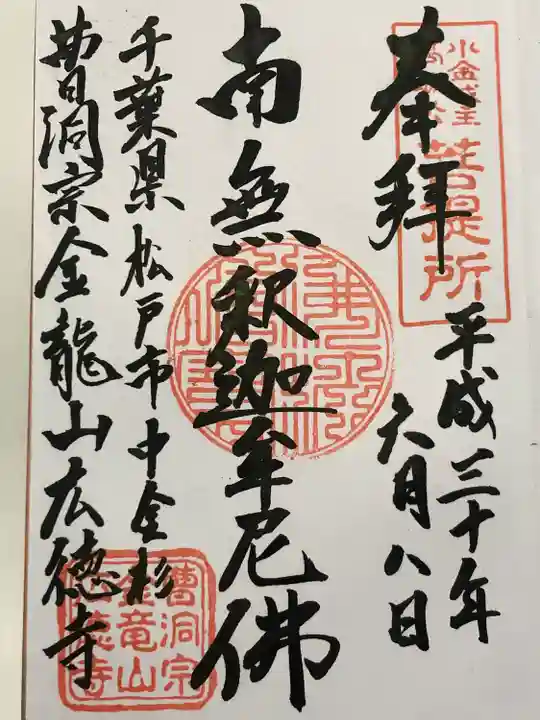 奉拝
平成三十年
六月八日
小金城主
菩提所
南無釈迦牟尼佛
千葉県松戸市中金杉
曹洞宗金龍山広徳寺
曹洞宗
金竜山
広徳寺